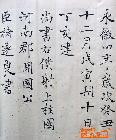 永徽四年歲次癸丑
十二月戊寅朔十日
丁亥建
尚書右僕射上柱國
河南郡開國公
臣褚遂良書